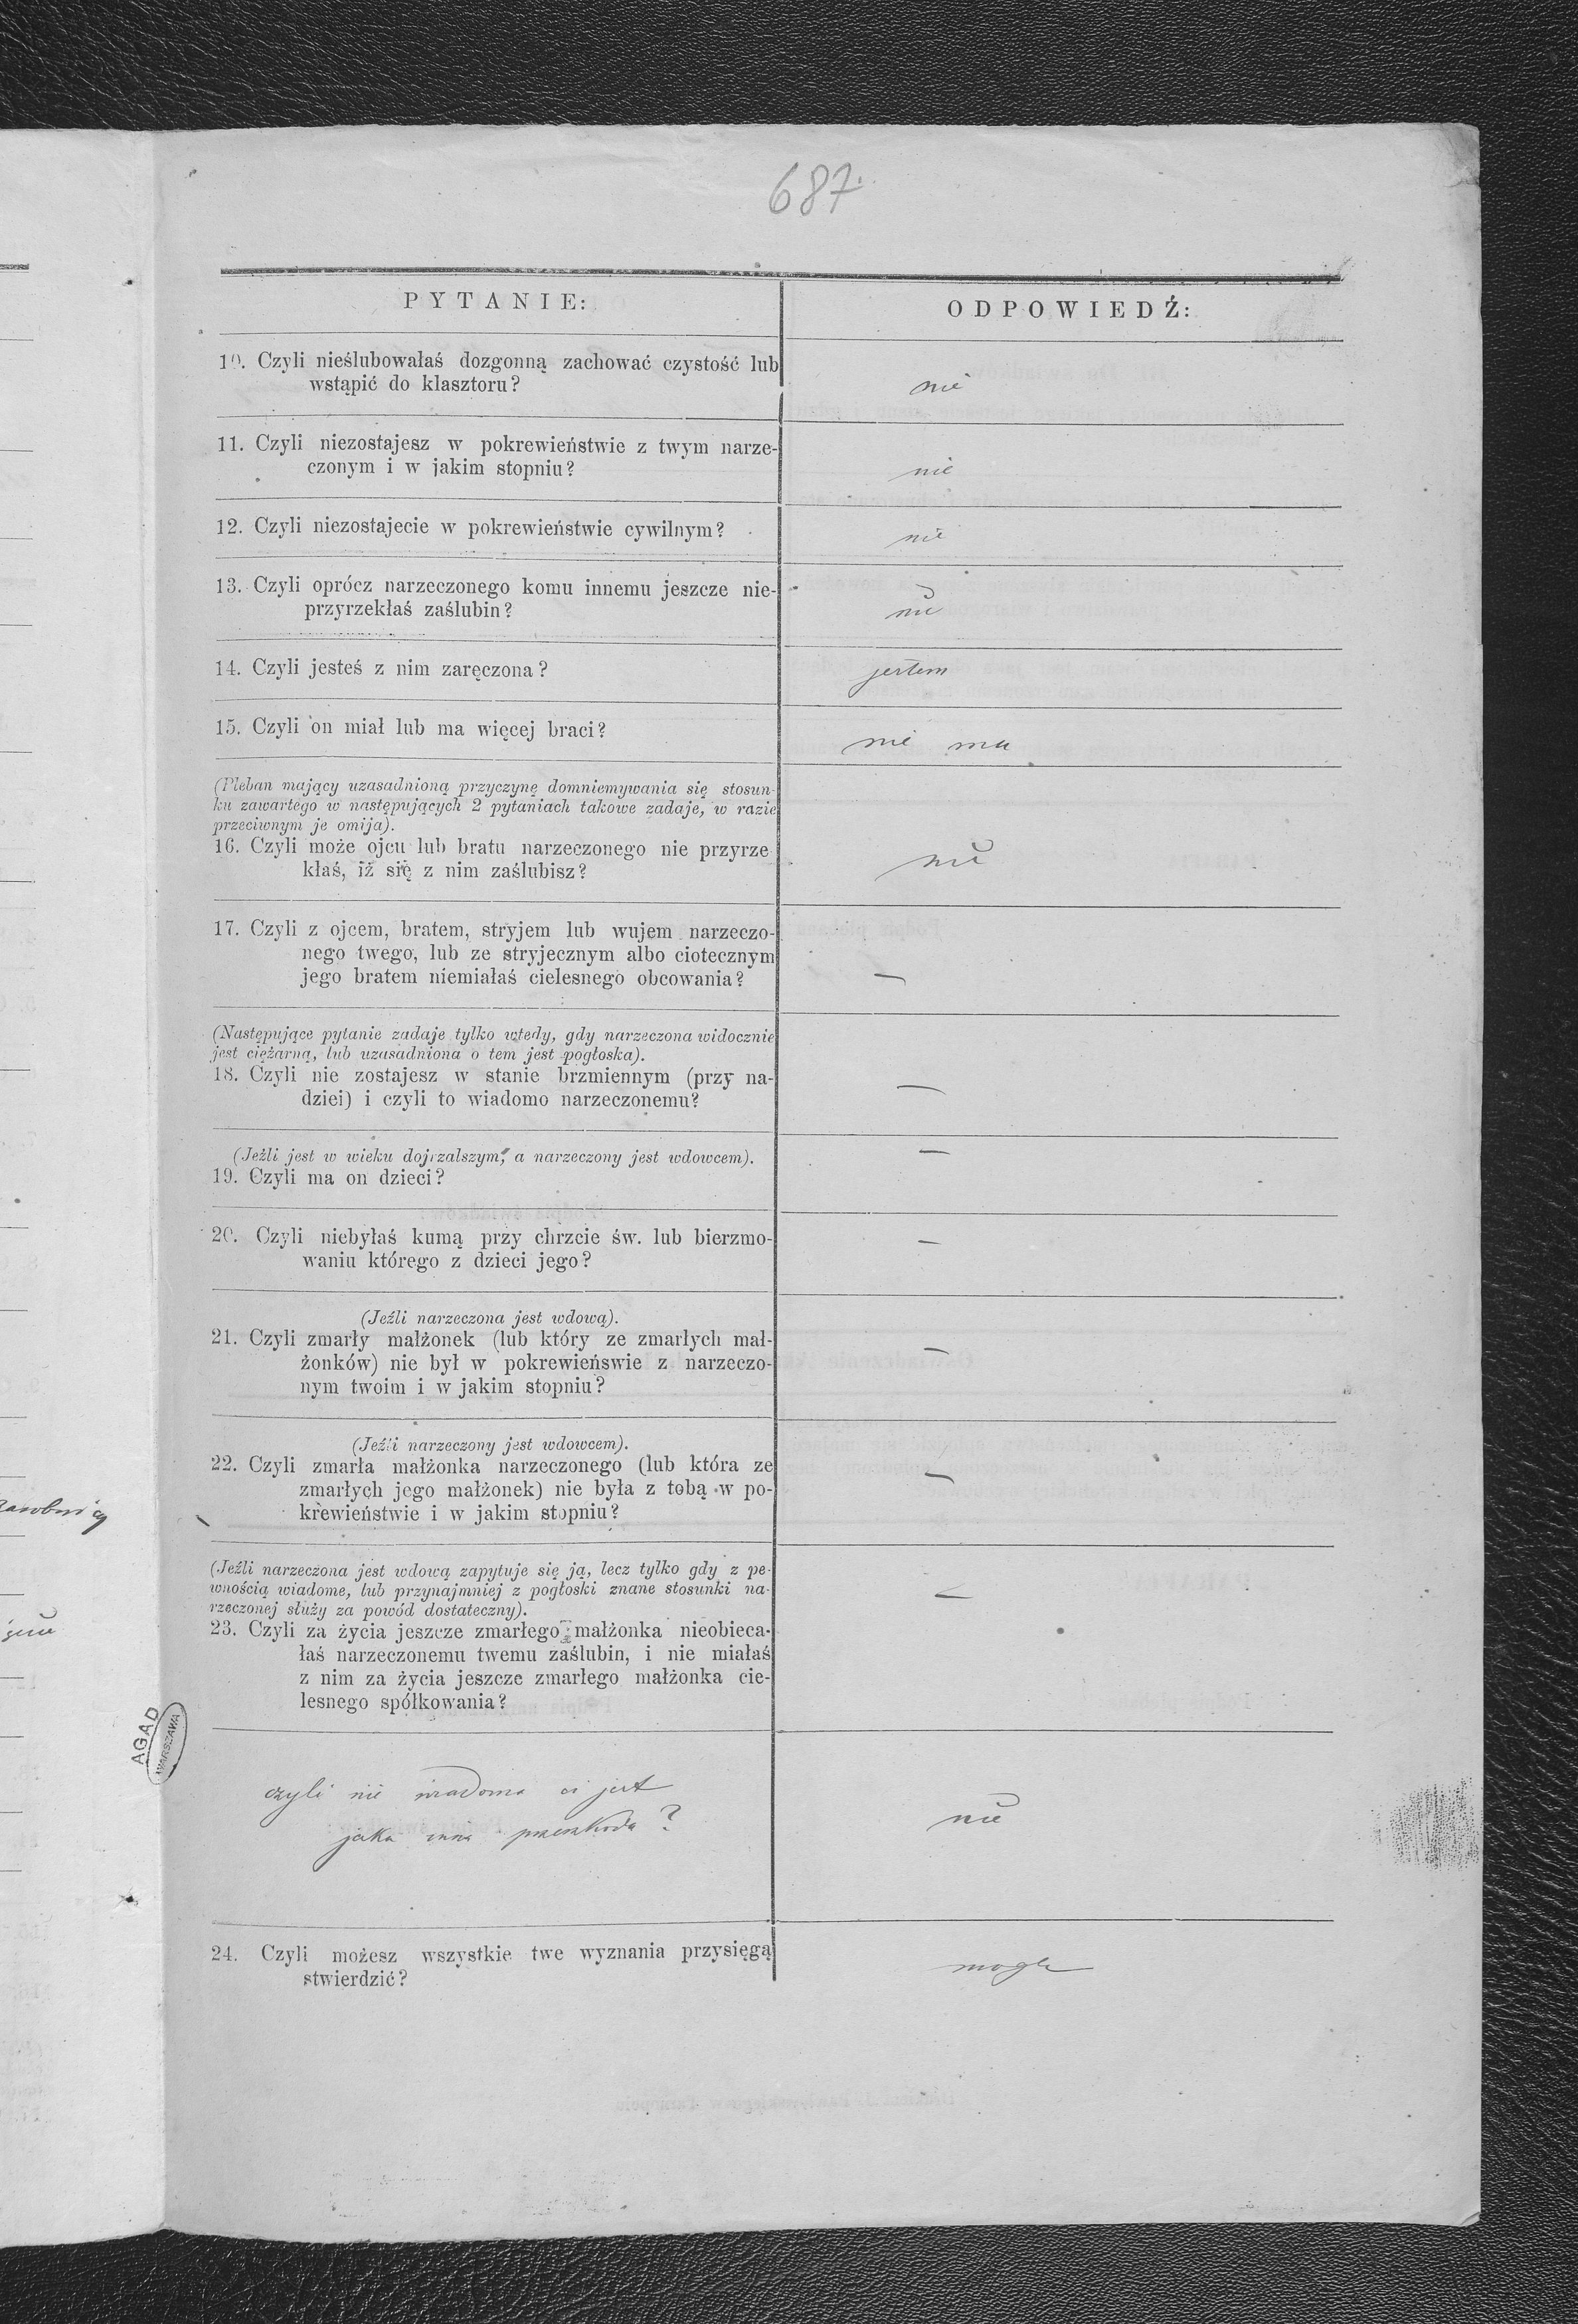 687.
PYTANIE:
ODPOWIEDŹ:
10. Czyli nieślubowałaś dozgonną zachować czystość lub
wstąpić do klasztoru?
nie
11. Czyli niezostajesz w pokrewieństwie z twym narze-
czonym i w jakim stopniu?
nie
12. Czyli niezostajecie w pokrewieństwie cywilnym?
nie
13. Czyli oprócz narzeczonego komu innemu jeszcze nie-
przyrzekłaś zaślubin?
nie
14. Czyli jesteś z nim zaręczona?
jestem
15. Czyli on miał lub ma więcej braci?
nie ma
(Pleban mający uzasadnioną przyczynę domniemywania się stosun-
ku zawartego w następujących 2 pytaniach takowe zadaje, w razie
przeciwnym je omija).
16. Czyli może ojcu lub bratu narzeczonego nie przyrze
kłaś, iż się z nim zaślubisz?
nie
17. Czyli z ojcem, bratem, stryjem lub wujem narzeczo-
nego twego, lub ze stryjecznym albo ciotecznym
jego bratem niemiałaś cielesnego obcowania?
—
(Następujące pytanie zadaje tylko wtedy, gdy narzeczona widocznie
jest ciężarną, lub uzasadniona o tem jest pogłoska).
18. Czyli nie zostajesz w stanie brzmiennym (przy na-
dziei) i czyli to wiadomo narzeczonemu?
—
(Jeźli jest w wieku dojrzalszym, a narzeczony jest wdowcem).
19. Czyli ma on dzieci?
—
20. Czyli niebyłaś kumą przy chrzcie św. lub bierzmo-
waniu którego z dzieci jego?
—
(Jeźli narzeczona jest wdową).
21. Czyli zmarły małżonek (lub który ze zmarłych mał-
żonków) nie był w pokrewieńswie z narzeczo-
nym twoim i w jakim stopniu?
—
(Jeźli narzeczony jest wdowcem).
22. Czyli zmarła małżonka narzeczonego (lub która ze
zmarłych jego małżonek) nie była z tobą w po-
krewieństwie i w jakim stopniu?
—
(Jeźli narzeczona jest wdową zapytuje się ją, lecz tylko gdy z pe-
wnością wiadome, lub przynajmniej z pogłoski znane stosunki na-
rzeczonej służy za powód dostateczny).
23. Czyli za życia jeszcze zmarłego małżonka nieobieca-
łaś narzeczonemu twemu zaślubin, i nie miałaś
z nim za życia jeszcze zmarłego małżonka cie-
lesnego spółkowania?
—
czyli nie wiadoma ci jest
jaka inna przeszkoda?
nie
24. Czyli możesz wszystkie twe wyznania przysięgą
stwierdzić?
mogę
AGAD
WARSZAWA